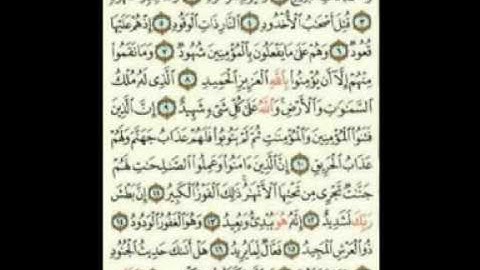 ۝٣ قُتِلَ أَصْحَٰبُ ٱلْأُخْدُودِ ۝٤ ٱلنَّارِ ذَاتِ ٱلْوَقُودِ ۝٥ إِذْ هُمْ عَلَيْهَا
قُعُودٌ ۝٦ وَهُمْ عَلَىٰ مَا يَفْعَلُونَ بِٱلْمُؤْمِنِينَ شُهُودٌ ۝٧ وَمَا نَقَمُوا۟
مِنْهُمْ إِلَّآ أَن يُؤْمِنُوا۟ بِٱللَّهِ ٱلْعَزِيزِ ٱلْحَمِيدِ ۝٨ ٱلَّذِى لَهُۥ مُلْكُ
ٱلسَّمَٰوَٰتِ وَٱلْأَرْضِ وَٱللَّهُ عَلَىٰ كُلِّ شَىْءٍ شَهِيدٌ ۝٩ إِنَّ ٱلَّذِينَ
فَتَنُوا۟ ٱلْمُؤْمِنِينَ وَٱلْمُؤْمِنَٰتِ ثُمَّ لَمْ يَتُوبُوا۟ فَلَهُمْ عَذَابُ جَهَنَّمَ وَلَهُمْ
عَذَابُ ٱلْحَرِيقِ ۝١٠ إِنَّ ٱلَّذِينَ ءَامَنُوا۟ وَعَمِلُوا۟ ٱلصَّٰلِحَٰتِ لَهُمْ
جَنَّٰتٌ تَجْرِى مِن تَحْتِهَا ٱلْأَنْهَٰرُ ذَٰلِكَ ٱلْفَوْزُ ٱلْكَبِيرُ ۝١١ إِنَّ بَطْشَ
رَبِّكَ لَشَدِيدٌ ۝١٢ إِنَّهُۥ هُوَ يُبْدِئُ وَيُعِيدُ ۝١٣ وَهُوَ ٱلْغَفُورُ ٱلْوَدُودُ ۝١٤
ذُو ٱلْعَرْشِ ٱلْمَجِيدُ ۝١٥ فَعَّالٌ لِّمَا يُرِيدُ ۝١٦ هَلْ أَتَىٰكَ حَدِيثُ ٱلْجُنُودِ